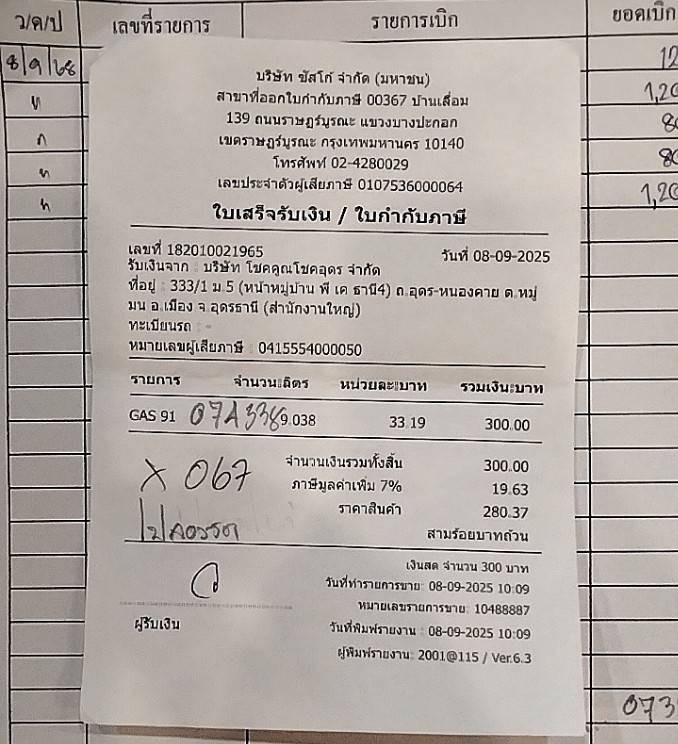 ว/ค/ป เลขที่รายการ รายการเบิก ยอดเบิก
8/9/68
บริษัท ซัสโก้ จำกัด (มหาชน)
สาขาที่ออกใบกำกับภาษี 00367 ปานเลื่อม
139 ถนนราษฎร์บูรณะ แขวงบางปะกอก
เขตราษฎร์บูรณะ กรุงเทพมหานคร 10140
โทรศัพท์ 02-4280029
เลขประจำตัวผู้เสียภาษี 0107536000064
ใบเสร็จรับเงิน / ใบกำกับภาษี
เลขที่ 182010021965 วันที่ 08-09-2025
รับเงินจาก : บริษัท โชคคูณโชคอุดร จำกัด
ที่อยู่ : 333/1 ม.5 (หน้าหมู่บ้าน พี เค ธานี4) ถ.อุดร-หนองคาย ต.หมู
มน อ.เมือง จ.อุดรธานี (สำนักงานใหญ่)
ทะเบียนรถ : -
หมายเลขผู้เสียภาษี : 0415554000050
รายการ จำนวน:ลิตร หน่วยละ:บาท รวมเงิน:บาท
GAS 91 074338 9.038 33.19 300.00
จำนวนเงินรวมทั้งสิ้น 300.00
X 067
ภาษีมูลค่าเพิ่ม 7% 19.63
ราคาสินค้า 280.37
สามร้อยบาทถ้วน
เงินสด จำนวน 300 บาท
วันที่ทำรายการขาย: 08-09-2025 10:09
หมายเลขรายการขาย: 10488887
ผู้รับเงิน
วันที่พิมพ์รายงาน : 08-09-2025 10:09
ผู้พิมพ์รายงาน: 2001@115 / Ver.6.3
073